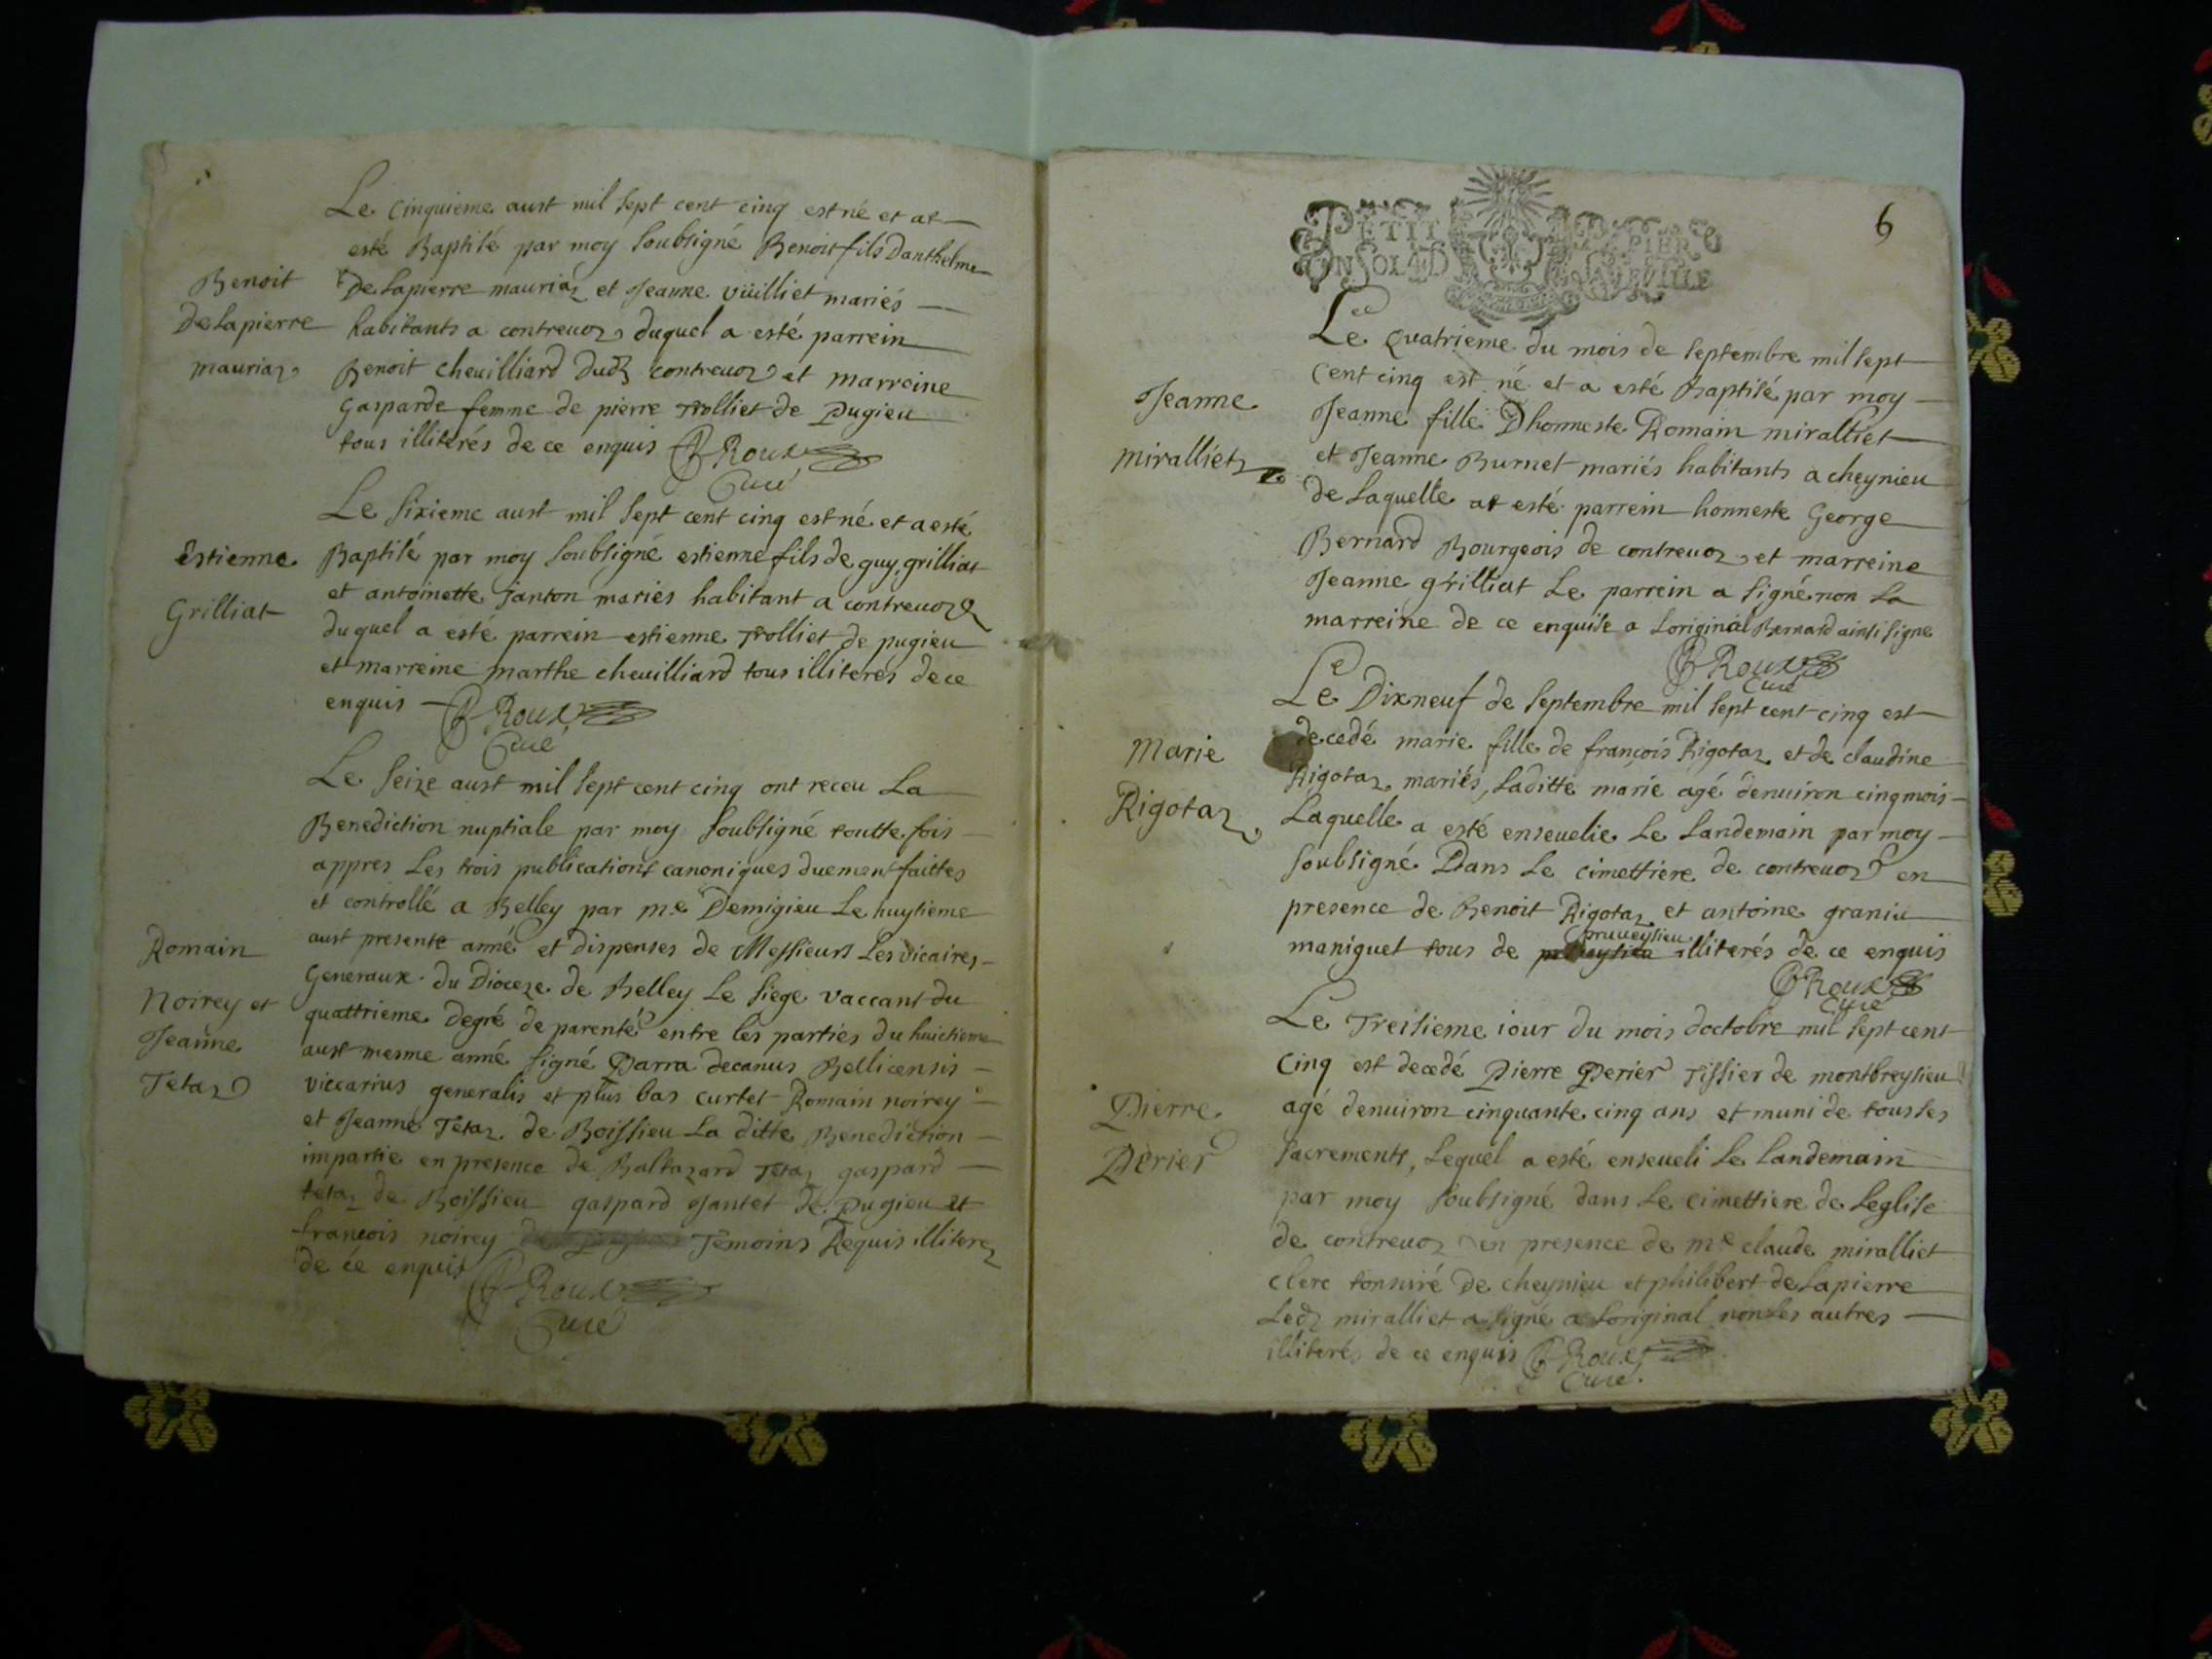 Le cinquieme aust mil sept cent cinq est né et at
esté Baptisé par moy soubsigné Benoit fils Danthelme
Benoit
De Lapierre mauriaz et Jeanne vüilliet mariés
De Lapierre
habitants a contrevoz duquel a esté parrein
mauriaz
Benoit cheuilliard dudt contreuoz et marreine
Gasparde femme de pierre Trolliet de Pugieu
tous illiterés de ce enquis Roux
Curé
Le sixieme aust mil sept cent cinq est né et a esté
Estienne
Baptisé par moy soubsigné estienne fils de guy grilliat
Grilliat
et antoinette Janton mariés habitant a contreuoz
duquel a esté parrein estienne Trolliet de pugieu
et marreine marthe cheuilliard tous illiterés de ce
enquis Roux
Curé
Le seize aust mil sept cent cinq ont receu La
Benediction nuptiale par moy soubsigné toutte fois
appres Les trois publications canoniques duement faittes
et controllé a Belley par me Demigieu Le huytieme
Romain
aust presente anné et dispenses de Messieurs Les vicaires
Noirey et
Generaux du Dioceze de Belley Le siege vaccant du
quattrieme degré de parenté entre les parties du huictieme
Jeanne
aust mesme anné signé Darra decanus Bellicensis
Tetaz
viccarius generalis et plus bas curtet Romain noirey
et Jeanne Tétaz de Boissieu La ditte Benediction
impartie en presence de Baltazard Tétaz gaspard
tétaz de Boissieu gaspard Jantet de Pugieu et
françois noirey Temoins Requis illiterez
de ce enquis Roux
Curé
6
PETIT PAPIER
ONSOLID
Le quatrieme du mois de septembre mil sept
cent cinq est né et a esté baptisé par moy
Jeanne
Jeanne fille Dhonneste Romain miralliet
miralliet
et Jeanne Burnet mariés habitants a cheynieu
de Laquelle at esté parrein honneste George
Bernard Bourgeois de contreuoz et marreine
Jeanne grilliat Le parrein a signé non La
marreine de ce enquise a Loriginal Bernard ainsi signe
Roux
Curé
Le Dixneuf de septembre mil sept cent cinq est
Marie
decedé marie fille de françois Rigotaz et de claudine
Rigotaz
Rigotaz mariés, Laditte marie agé denuiron cinq mois
Laquelle a esté enseuelie Le Landemain par moy
soubsigné Dans Le cimettiere de contreuoz en
presence de Benoit Rigotaz et antoine graniu
pruueysieu
maniguet tous de illiterés de ce enquis
Roux
Curé
Le Treisieme iour du mois doctobre mil sept cent
cinq est decedé Pierre Perier Tissier de montbreysieu
Pierre
agé denuiron cinquante cinq ans et muni de tous les
Perier
sacrements, Lequel a esté enseueli Le Landemain
par moy soubsigné dans Le cimettiere de Leglise
de contreuoz en presence de me claude miralliet
clerc tonsuré De cheynieu et philibert de Lapierre
Ledt miralliet a signé a Loriginal non les autres
illiterés de ce enquis Roux
Curé.